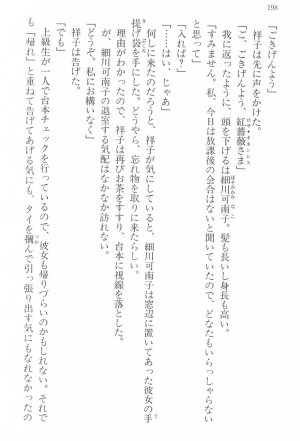 198
「ごきげんよう」
祥子は先に声をかけた。
「ご、ごきげんよう、紅薔薇さま」
我に返ったように、頭を下げる細川可南子。髪も長いし身長も高い。
「すみません。私、今日は放課後の会合はないと聞いていたので、どなたもいらっしゃらない
と思って」
「入れば?」
「……はい、じゃあ」
何しに来たのだろうと、祥子が気にしていると、細川可南子は窓辺に置いてあった彼女の手
提げ袋を手にした。どうやら、忘れ物を取りに来たらしい。
理由がわかったので、祥子は再びお茶をすすり、台本に視線を落とした。
が、細川可南子の退室する気配はなかなか訪れない。
「どうぞ。私にお構いなく」
祥子は告げた。
「でも」
上級生が一人で台本チェックを行っているので、彼女も帰りづらいのかもしれない。それで
も「帰れ」と重ねて告げてあげる気にも、タイを掴んで引っ張り出す気にもなれなかったの